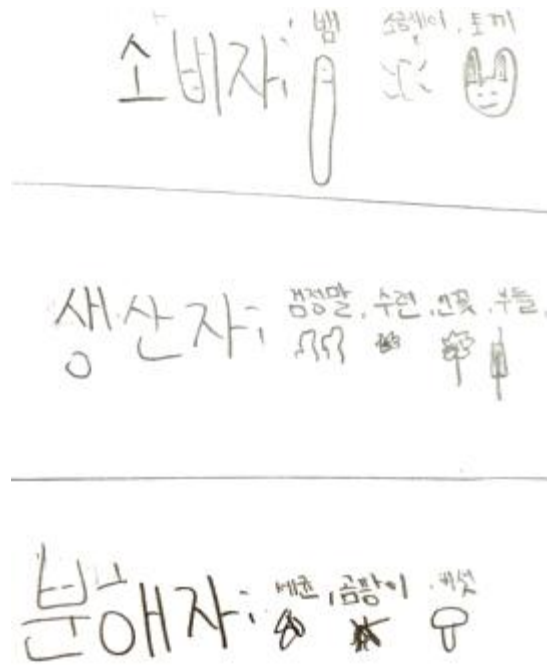 소비자; 뱀 소금쟁이, 토끼
생산자; 검정말, 수련, 연꽃, 부들,
분애자; 세균, 곰팡이, 버섯